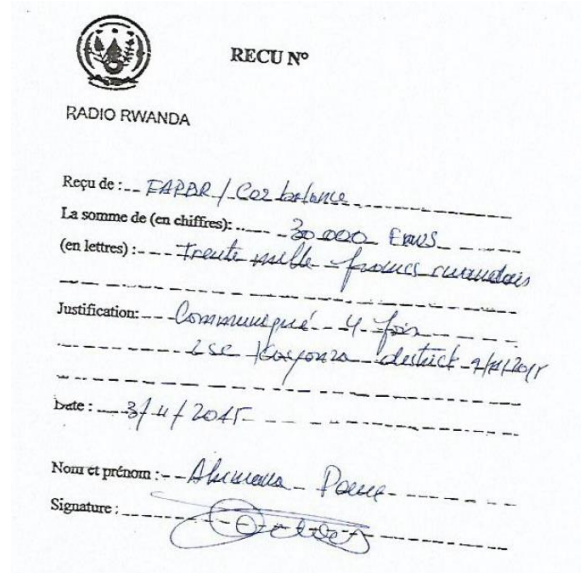 RECU Nº
RADIO RWANDA
Reçu de : EAPBR / Co2 balance
La somme de (en chiffres): 30 000 FRWS
(en lettres) : Trente mille francs rwandais
Justification: Communiqué 4 fois
Kayonza district
Date : 3/4/2015
Nom et prénom :
Signature :